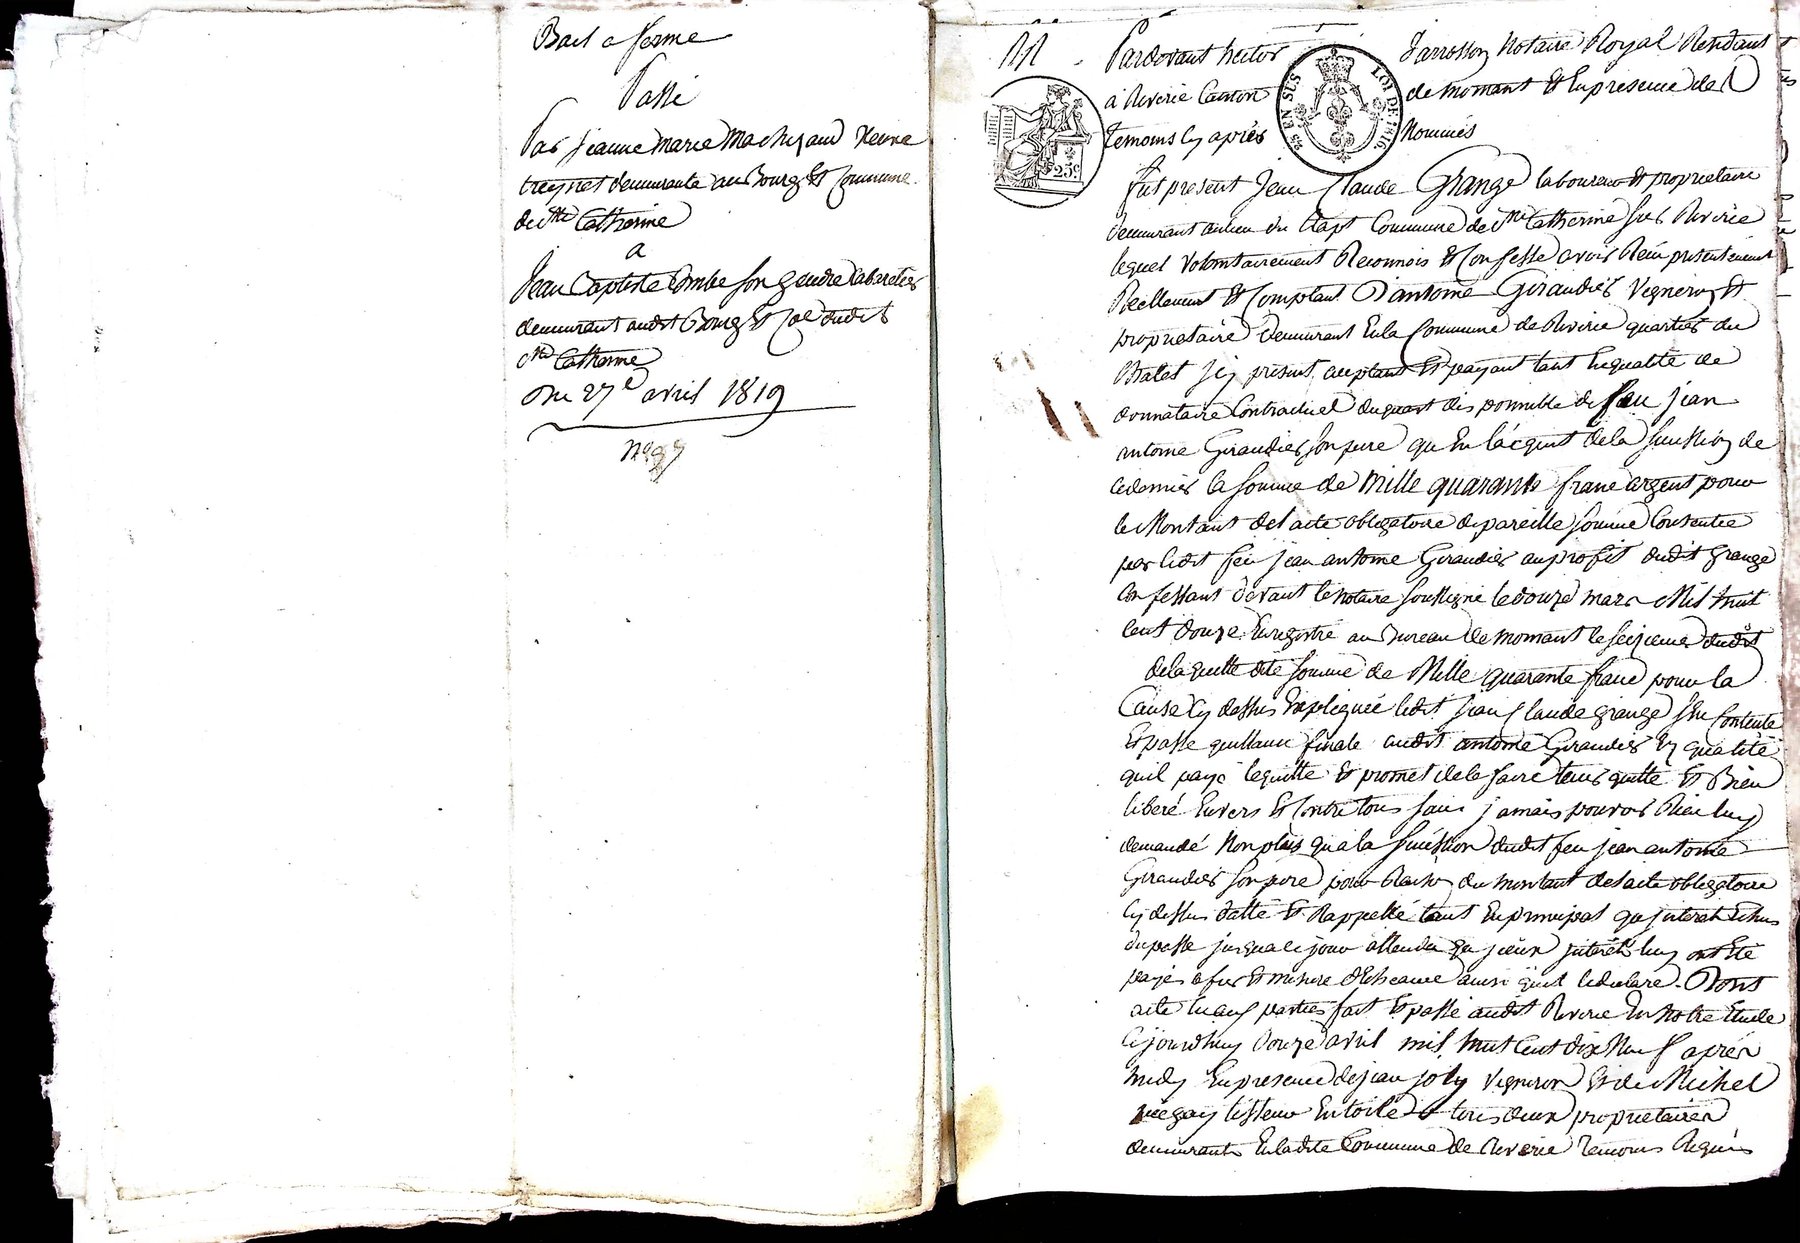 Bail a ferme
Passé
Par jeanne marie Machizaud veuve
treynet demeurante au Bourg et Commune
de Ste Catherine
a
Jean Baptiste Combe son gendre Cabaretier
demeurant audit Bourg et Cne dudit
Ste Catherine
Du 27e avril 1819
No 97
Pardevant hector Jarrosson Notaire Royal Residant
à Riverie Canton de mornant Et En présence des
temoins Cy après Nommés
25 EN SUS
LOI DE 1816
25c
fut present Jean Claude Grange laboureur et proprietaire
demeurant au lieu du Clapt Commune de Ste Catherine sur Riverie
lequel volontairement Reconnois et Confesse avoir Reçu présentément
Réellement et Comptant D'antoine Giraudier Vigneron et
proprietaire demeurant En la Commune de Riverie quartier du
Ballet Icy présent acceptant et payant tant En qualité de
donnataire Contractuel du quart disponnible de feu jean
antoine Giraudier son pere qu'En l'acquit de la suession de
ce dernier la somme de Mille quarante franc argent pour
le Montant de l'acte obligatoire de pareille somme Consentie
par ledit feu jean antoine Giraudier au profit dudit grange
Confessant devant le notaire soussigné le douze mars Mil huit
Cent douze Enregistré au Bureau de mornant le seizieme dudit
de laquelle dite somme de Mille quarante franc pour la
Cause Cy dessus Expliquée ledit jean Claude grange s'En Contente
Et passe quittance finale audit antoine Giraudier En qualité
quil paye lequitte et promet de le faire tenir quitte et Bien
liberé Envers et Contre tous sans jamais pouvoir Rien luy
demandé Non plus qu'a la succession dudit feu jean antoine
Giraudier son pere pour Raison du montant de l'acte obligatoire
Cy dessus datté et Rappellé tant En principal qu'interets Echus
du passé jusqua ce jour attendu que jceux jnterêts luy ont Eté
payés a fur et mesure d'Echeance ainsi quil le declare. Dont
acte Aux parties fait Et passé audit Riverie En Notre Etude
Cejourdhuy Douze avril mil huit Cent dix Neuf après
midy En presence de jean joly Vigneron et de Michel
tisseur En toile tous deux proprietaires
demeurants En ladite Commune de Riverie temoins Requis